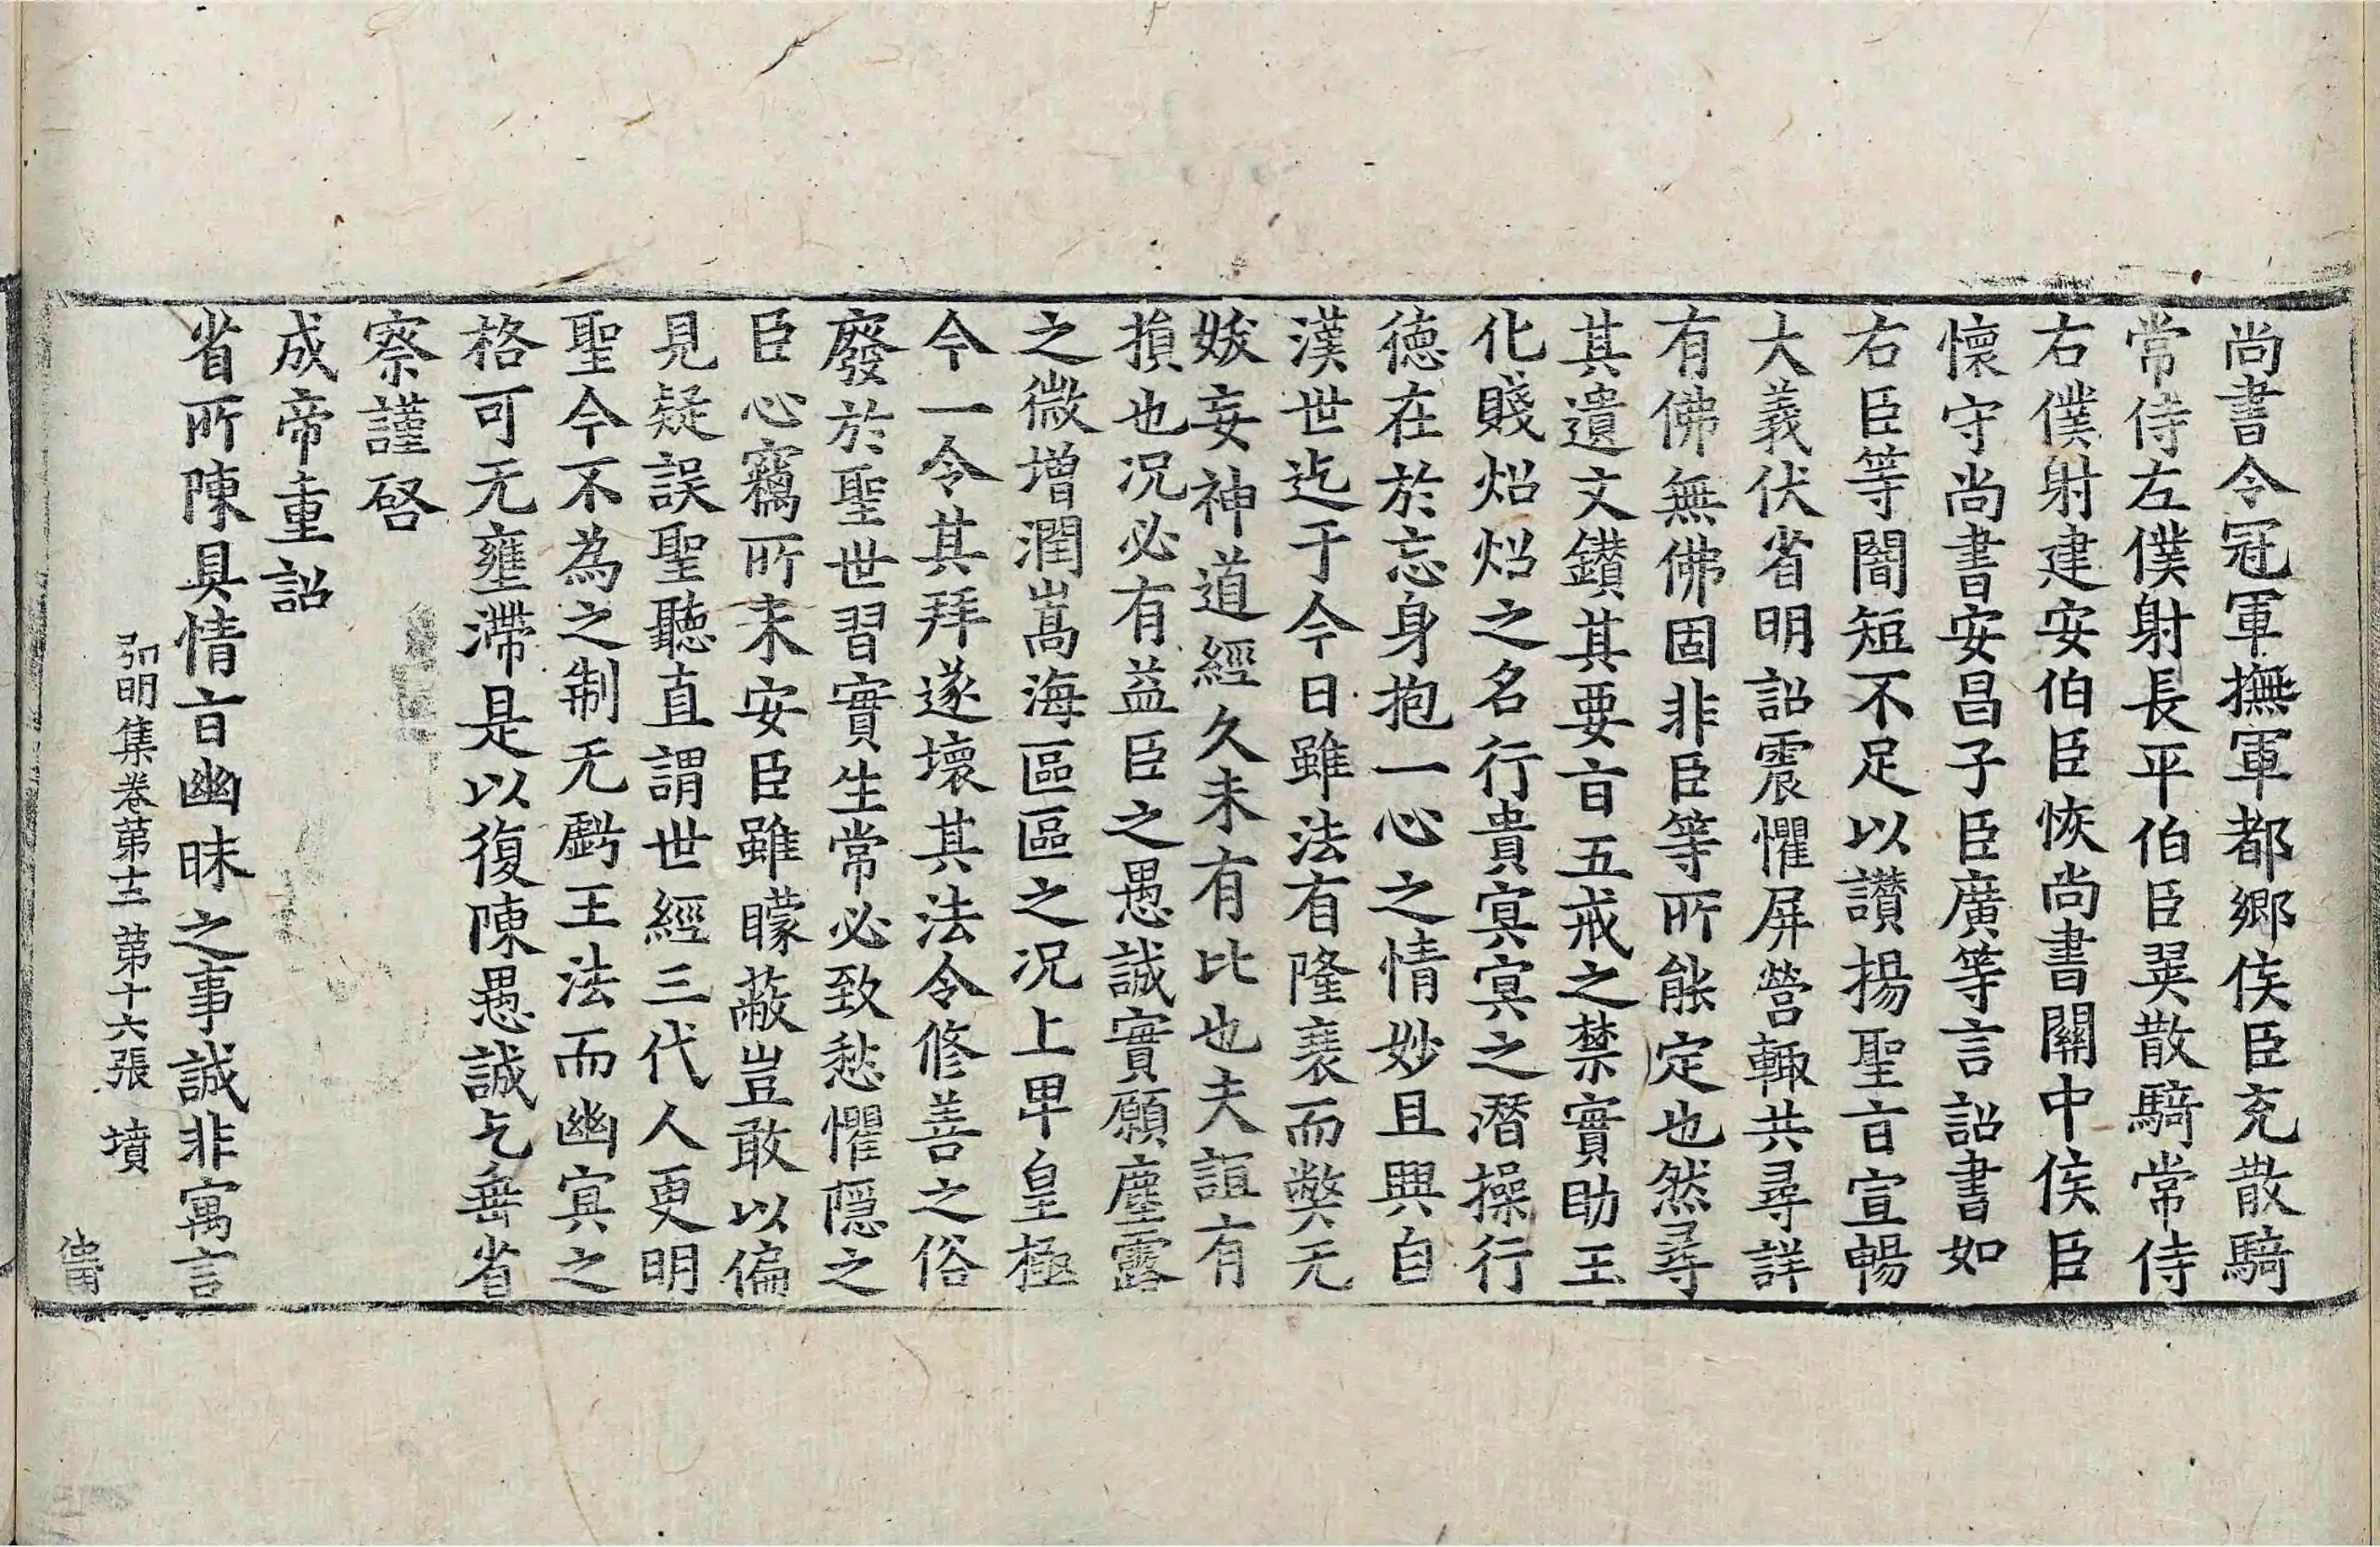 尚書令冠軍撫軍都鄉侯臣充散騎
常侍左僕射長平伯臣翼散騎常侍
右僕射建安伯臣恢尚書關中侯臣
懷守尚書安昌子臣廣等言詔書如
右臣等闇短不足以讚揚聖旨宣暢
大義伏省明詔震懼屏營輙共尋詳
有佛無佛固非臣等所能定也然尋
其遺文鑚其要旨五戒之禁實助王
化賤炤炤之名行貴冥冥之潛操行
德在於忘身抱一心之情妙且興自
漢世迄于今日雖法有隆衰而弊无
妖妄神道經久未有比也夫詛有
損也况必有益臣之愚誠實願塵露
之微增潤嵩海區區之况上卑皇極
今一令其拜遂壞其法令修善之俗
廢於聖世習實生常必致愁懼隱之
臣心竊所未安臣雖矇蔽豈敢以偏
見疑誤聖聽直謂世經三代人更明
聖今不為之制无虧王法而幽冥之
格可无壅滯是以復陳愚誠乞垂省
察謹啓
成帝重詔
省所陳具情旨幽昧之事誠非寓言
弘明集卷第十二 第十六張 墳